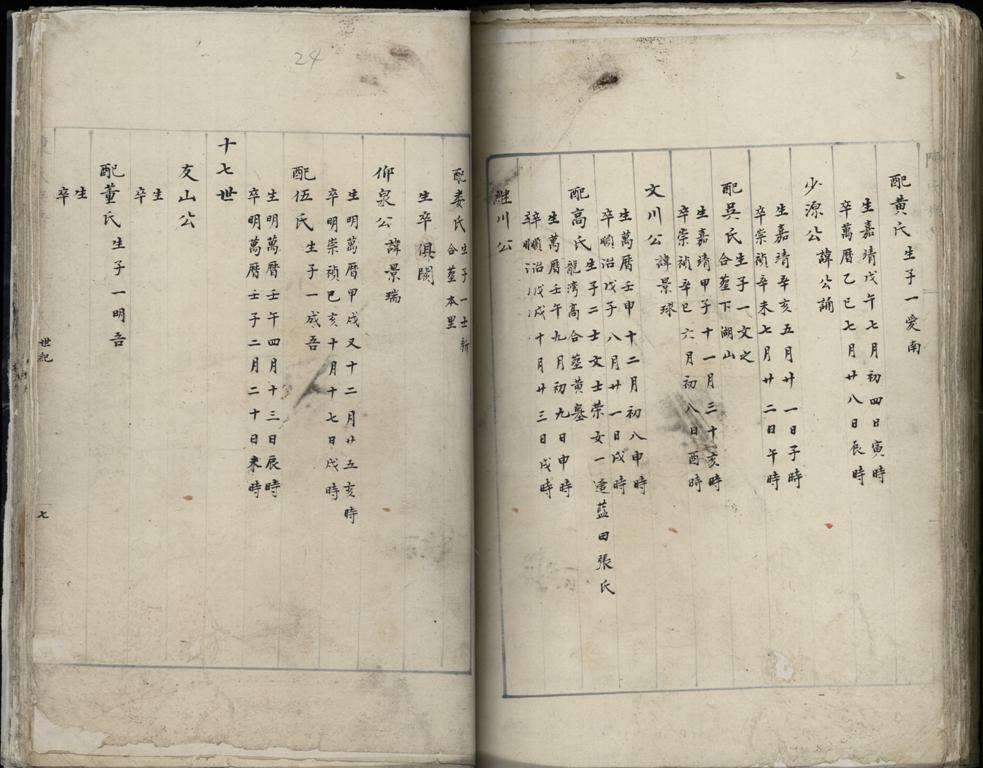 配黃氏 生子一愛南
生嘉靖戊午七月初四日寅時
卒萬曆乙巳七月廿八日辰時
少源公 諱公誦
生嘉靖辛亥五月廿一日子時
卒崇禎辛未七月廿二日午時
配吳氏 生子一文之
合塟下湖山
生嘉靖甲子十一月三十亥時
卒崇禎辛巳六月初八日酉時
文川公 諱景球
生萬曆壬申十二月初八申時
卒順治戊子八月廿一日戌時
配高氏 生子二士文士榮女一適藍田張氏
龍灣高合塟黃墓
生萬曆壬午九月初九日申時
卒順治戊戌十月廿三日戌時
川公
配婁氏 生子一士新
合塟本里
生卒俱闕
仰泉公 諱景瑞
生明萬曆甲戌又十二月廿五亥時
卒明崇禎己亥十月十七日戌時
配伍氏 生子一成吾
生明萬曆壬午四月十三日辰時
卒明萬曆壬子二月二十日未時
十七世
友山公
生
卒
配董氏 生子一明吾
生
卒
世紀
七
24